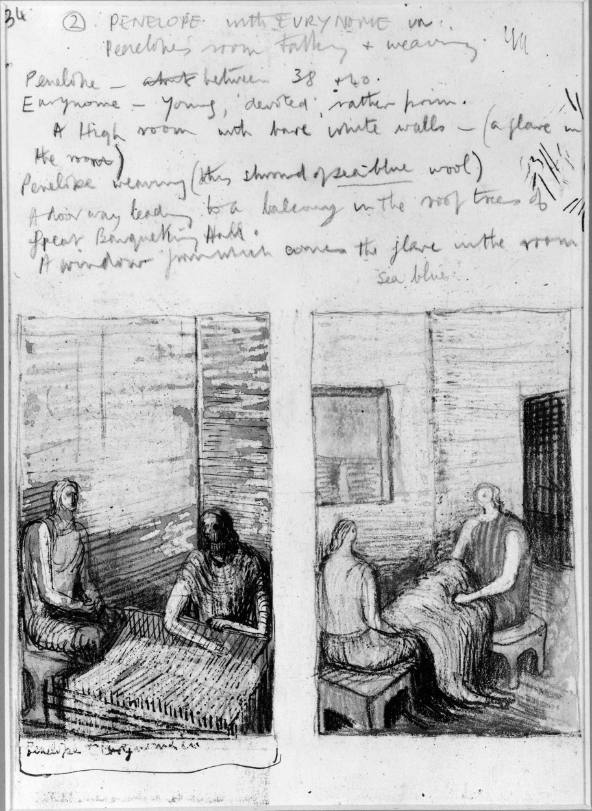 34
② PENELOPE with EURYNOME in
Penelopes room talking + weaving. 44
Penelope — about between 38 + 40.
Eurynome — Young, devoted, rather prim.
A High room with bare white walls — (a glare in
the room)
Penelope weaving (this shroud of sea-blue wool)
A doorway leading to a balcony in the roof trees of
great Banquetting Hall.
A window from which comes the glare in the room
sea blue.
Penelope